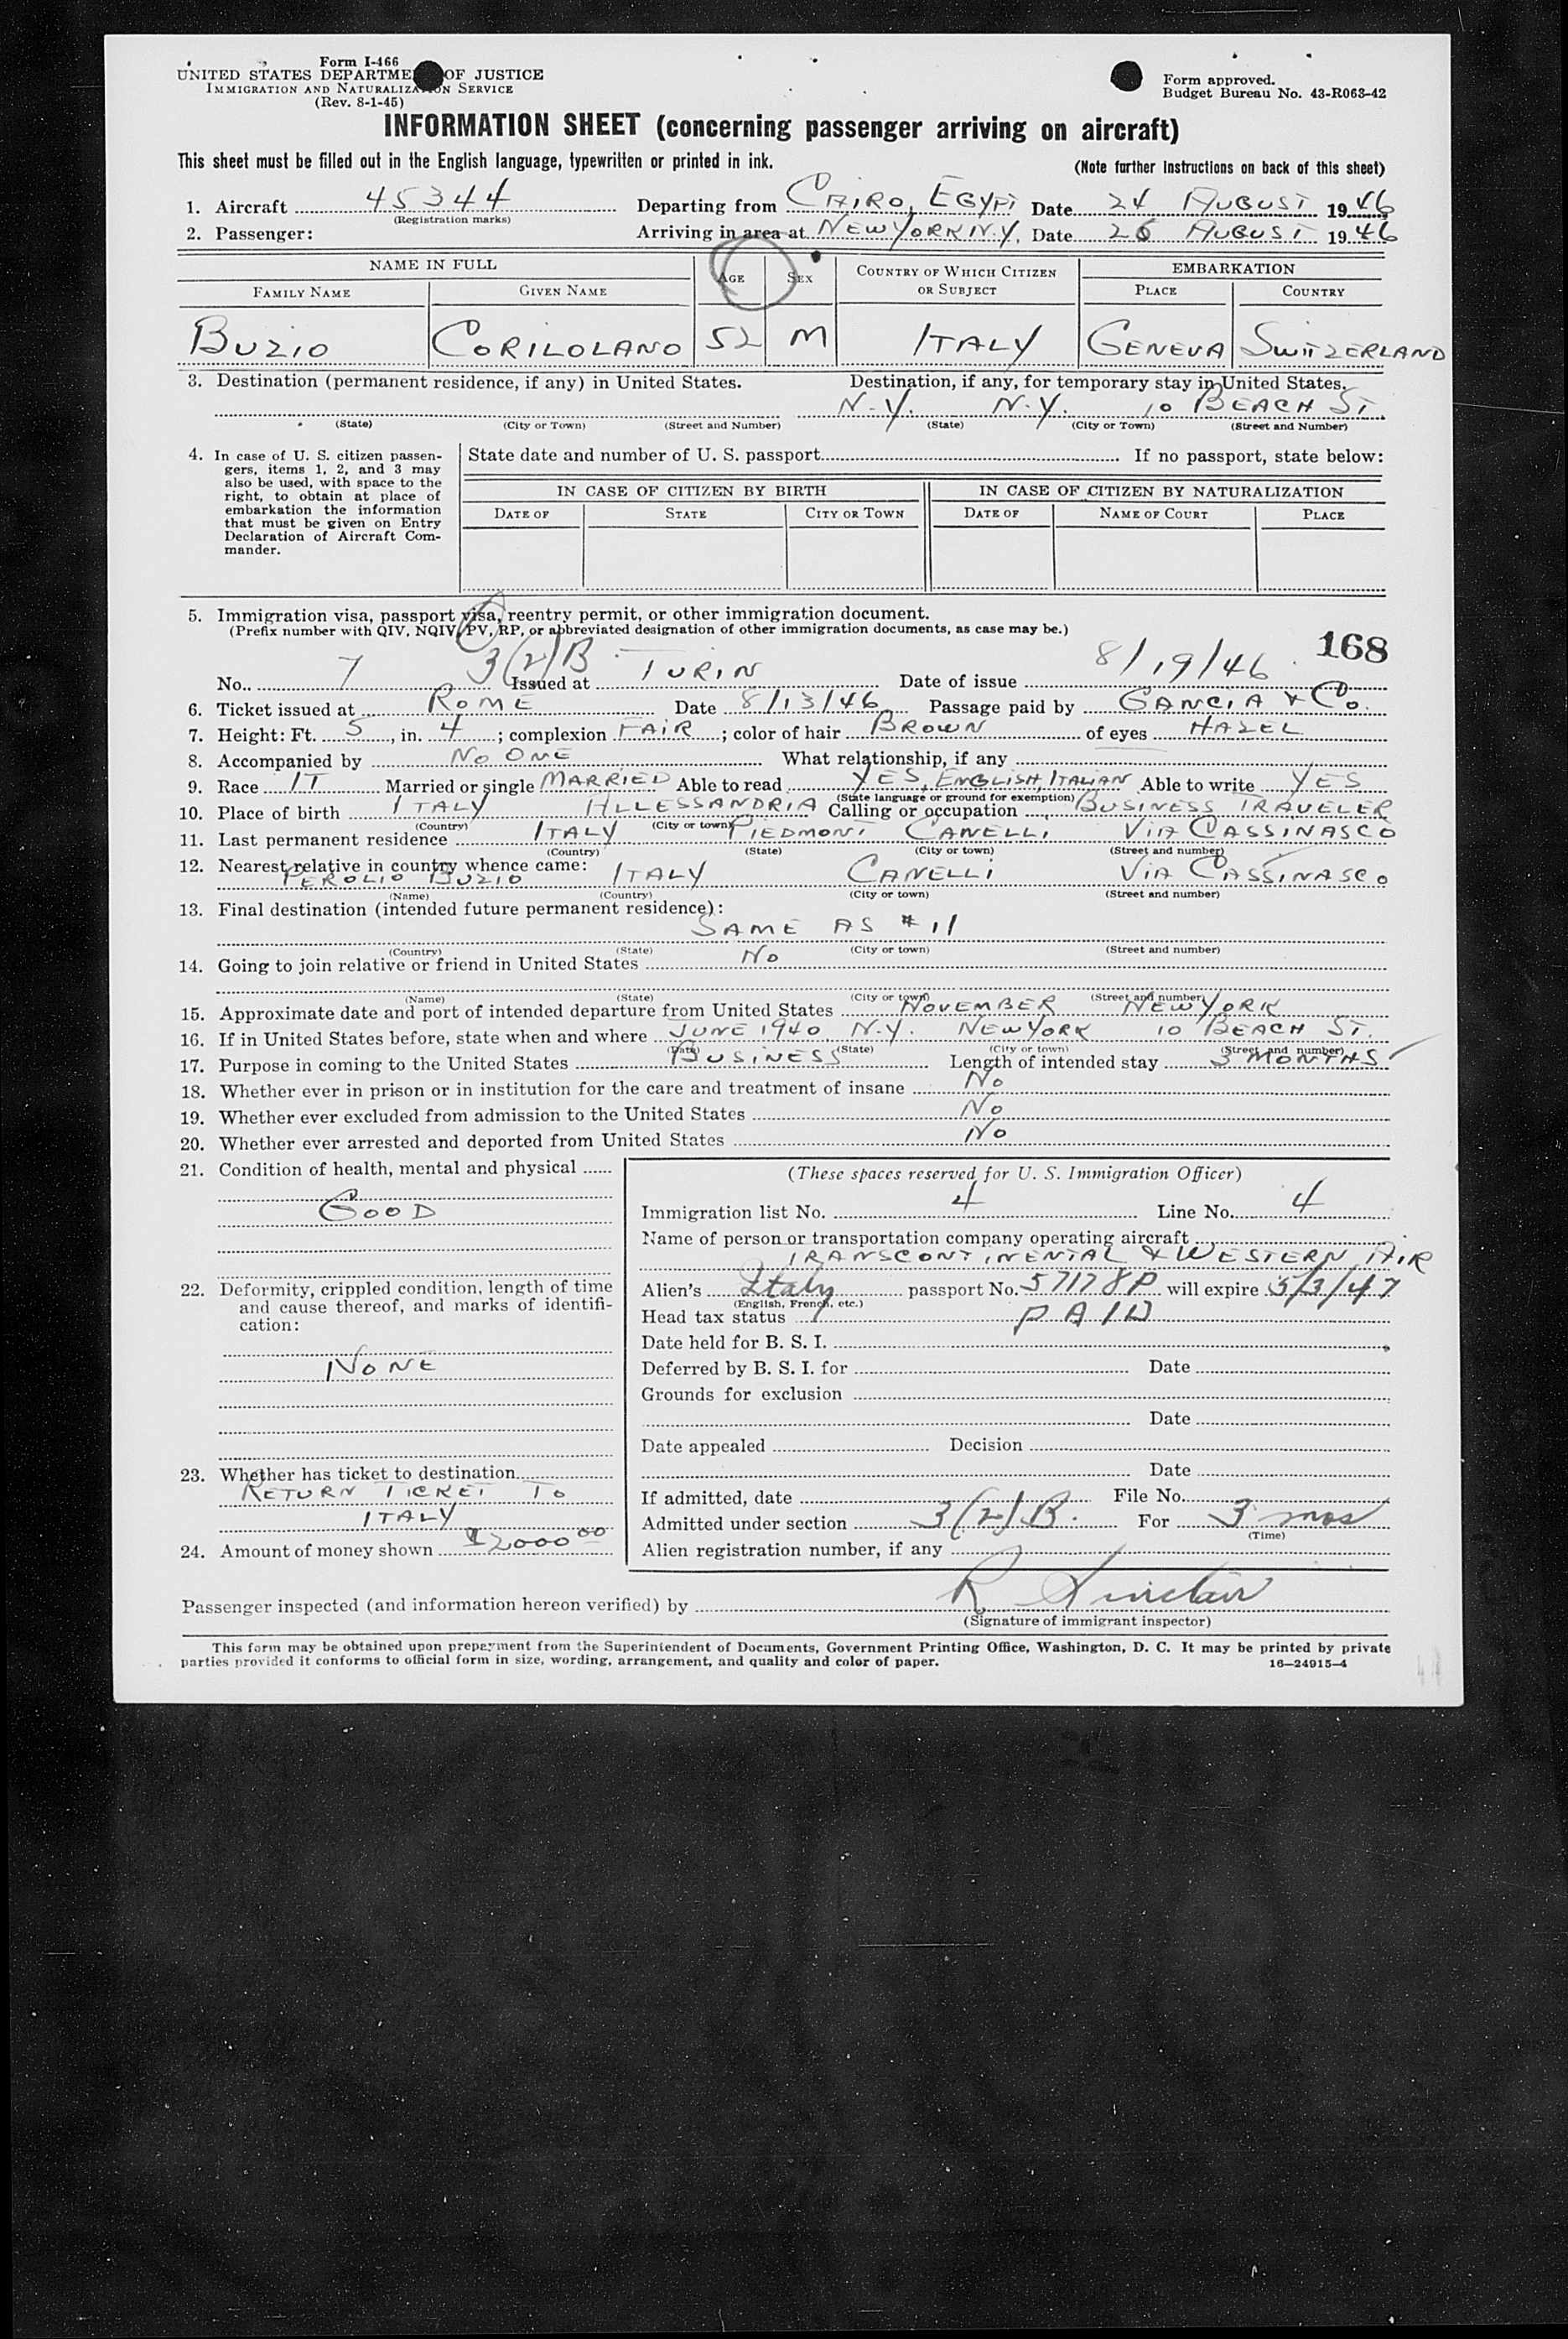 Form I-466
UNITED STATES DEPARTME OF JUSTICE
IMMIGRATION AND NATURALIZATION SERVICE
(Rev. 8-1-45)
Form approved.
Budget Bureau No. 43-R063-42
INFORMATION SHEET (concerning passenger arriving on aircraft)
This sheet must be filled out in the English language, typewritten or printed in ink. (Note further instructions on back of this sheet)
1. Aircraft 45344 Departing from CAIRO, EGYPT Date 24 AUGUST 1946
(Registration marks)
2. Passenger: Arriving in area at NEW YORK N.Y. Date 26 AUGUST 1946
NAME IN FULL AGE SEX COUNTRY OF WHICH CITIZEN OR SUBJECT EMBARKATION
FAMILY NAME GIVEN NAME PLACE COUNTRY
BUZIO CORILOLANO 52 M ITALY GENEVA SWITZERLAND
3. Destination (permanent residence, if any) in United States. Destination, if any, for temporary stay in United States.
N.Y. N.Y. 10 BEACH ST.
(State) (City or Town) (Street and Number) (State) (City or Town) (Street and Number)
4. In case of U. S. citizen passengers, items 1, 2, and 3 may also be used, with space to the right, to obtain at place of embarkation the information that must be given on Entry Declaration of Aircraft Commander.
State date and number of U. S. passport If no passport, state below:
IN CASE OF CITIZEN BY BIRTH IN CASE OF CITIZEN BY NATURALIZATION
DATE OF STATE CITY OR TOWN DATE OF NAME OF COURT PLACE
5. Immigration visa, passport visa, reentry permit, or other immigration document.
(Prefix number with QIV, NQIV, PV, RP, or abbreviated designation of other immigration documents, as case may be.)
168
No. 7 3(2)B Issued at TURIN Date of issue 8/19/46
6. Ticket issued at ROME Date 8/13/46 Passage paid by GANCIA & Co.
7. Height: Ft. 5, in. 4; complexion FAIR; color of hair BROWN of eyes HAZEL
8. Accompanied by NO ONE What relationship, if any
9. Race IT Married or single MARRIED Able to read YES, ENGLISH, ITALIAN Able to write YES
(State language or ground for exemption)
10. Place of birth ITALY ALLESSANDRIA Calling or occupation BUSINESS TRAVELER
(Country) (City or town)
11. Last permanent residence ITALY PIEDMONT CANELLI VIA CASSINASCO
(Country) (State) (City or town) (Street and number)
12. Nearest relative in country whence came:
PEROLIO BUZIO ITALY CANELLI VIA CASSINASCO
(Name) (Country) (City or town) (Street and number)
13. Final destination (intended future permanent residence):
SAME AS #11
(Country) (State) (City or town) (Street and number)
14. Going to join relative or friend in United States NO
(Name) (State) (City or town) (Street and number)
15. Approximate date and port of intended departure from United States NOVEMBER NEW YORK
16. If in United States before, state when and where JUNE 1940 N.Y. NEW YORK 10 BEACH ST.
(Date) (State) (City or town) (Street and number)
17. Purpose in coming to the United States BUSINESS Length of intended stay 3 MONTHS
18. Whether ever in prison or in institution for the care and treatment of insane No
19. Whether ever excluded from admission to the United States No
20. Whether ever arrested and deported from United States No
21. Condition of health, mental and physical
GOOD
22. Deformity, crippled condition, length of time and cause thereof, and marks of identification:
NONE
23. Whether has ticket to destination
RETURN TICKET TO
ITALY
24. Amount of money shown $2000 00
(These spaces reserved for U. S. Immigration Officer)
Immigration list No. 4 Line No. 4
Name of person or transportation company operating aircraft
TRANSCONTINENTAL & WESTERN AIR
Alien's Italy passport No. 57178P will expire 5/3/47
(English, French, etc.)
Head tax status PAID
Date held for B. S. I.
Deferred by B. S. I. for Date
Grounds for exclusion
Date
Date appealed Decision
Date
If admitted, date File No.
Admitted under section 3(2)B. For 3 mos
(Time)
Alien registration number, if any
Passenger inspected (and information hereon verified) by R Sinclair
(Signature of immigrant inspector)
This form may be obtained upon prepayment from the Superintendent of Documents, Government Printing Office, Washington, D. C. It may be printed by private
parties provided it conforms to official form in size, wording, arrangement, and quality and color of paper. 16—24915-4